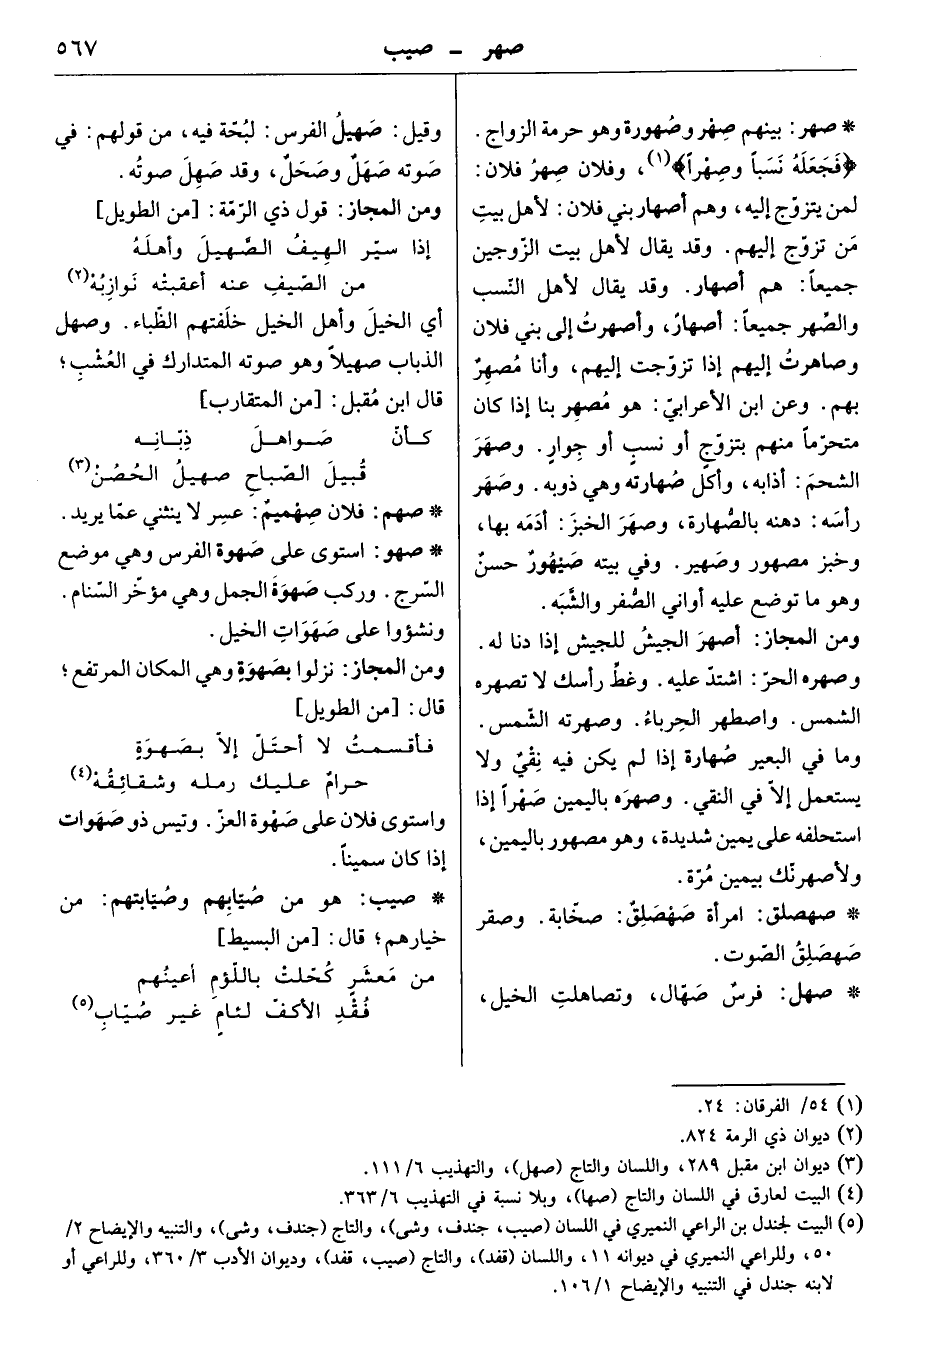 صهر ـ صيب
٥٦٧
* صهر: بينهم صِهْر وصُهورة وهو حرمة الزواج.
﴿فَجَعَلَهُ نَسَباً وصِهْراً﴾(١)، وفلان صِهرُ فلان:
لمن يتزوّج إليه، وهم أصهار بني فلان: لأهل بيتِ
مَن تزوّج إليهم. وقد يقال لأهل بيت الزّوجين
جميعاً: هم أصهار. وقد يقال لأهل النّسب
والصِّهر جميعاً: أصهارٌ، وأصهرتُ إلى بني فلان
وصاهرتُ إليهم إذا تزوّجت إليهم، وأنا مُصهِرٌ
بهم. وعن ابن الأعرابيّ: هو مُصهِر بنا إذا كان
متحرّماً منهم بتزوّجٍ أو نسبٍ أو جوارٍ. وصهَرَ
الشحمَ: أذابه، وأكل صُهارته وهي ذوبه. وصَهَر
رأسَه: دهنه بالصُّهارة، وصهَرَ الخبزَ: أدَمَه بها،
وخبز مصهور وصَهير. وفي بيته صَيْهُورٌ حسنٌ
وهو ما توضع عليه أواني الصُّفر والشَّبَه.
ومن المجاز: أصهرَ الجيشُ للجيش إذا دنا له.
وصهره الحرّ: اشتدّ عليه. وغطِّ رأسك لا تصهره
الشمس. واصطهر الحِرباءُ. وصهرته الشّمس.
وما في البعير صُهارة إذا لم يكن فيه نِقْيٌ ولا
يستعمل إلاّ في النقي. وصهرَه باليمين صَهْراً إذا
استحلفه على يمين شديدة، وهو مصهور باليمين،
ولأصهرنّك بيمين مُرّة.
* صهصلق: امرأة صَهْصَلِقٌ: صخّابة. وصقر
صَهصَلِقُ الصّوت.
* صهل: فرسٌ صَهّال، وتصاهلتِ الخيل،
وقيل: صَهيلُ الفرس: لبُحّة فيه، من قولهم: في
صَوته صَهَلٌ وصَحَلٌ، وقد صَهِلَ صوتُه.
ومن المجاز: قول ذي الرّمّة: [من الطويل]
إذا سيّر الهِيفُ الصَّهيلَ وأهلَهُ
من الصّيفِ عنه أعقبتْه نَوازِبُهْ(٢)
أي الخيلَ وأهل الخيل خلَفتهم الظّباء. وصهل
الذباب صهيلاً وهو صوته المتدارك في العُشْبِ؛
قال ابن مُقبل: [من المتقارب]
كـأنّ صَـواهـلَ ذِبّـانِـه
قُبيلَ الصّباحِ صهيلُ الحُصُنْ(٣)
* صهم: فلان صِهْميمٌ: عسِر لا ينثني عمّا يريد.
* صهو: استوى على صَهوة الفرس وهي موضع
السّرج. وركب صَهوَةَ الجمل وهي مؤخّر السّنام.
ونشؤوا على صَهَوَاتِ الخيل.
ومن المجاز: نزلوا بصَهوَةٍ وهي المكان المرتفع؛
قال: [من الطويل]
فأقسمتُ لا أحتَلّ إلاّ بصَهوَةٍ
حرامٌ عليك رمله وشقائِقُهْ(٤)
واستوى فلان على صَهْوة العزّ. وتيس ذو صَهَوات
إذا كان سميناً.
* صيب: هو من صُيّابِهم وصُيّابتهم: من
خيارهم؛ قال: [من البسيط]
من مَعشَرٍ كُحّلتْ باللّؤمِ أعينُهم
قُفْدِ الأكفّ لئامٍ غير صُيّابِ(٥)
(١) ٥٤/ الفرقان: ٢٤.
(٢) ديوان ذي الرمة ٨٢٤.
(٣) ديوان ابن مقبل ٢٨٩، واللسان والتاج (صهل)، والتهذيب ١١١/٦.
(٤) البيت لعارق في اللسان والتاج (صها)، وبلا نسبة في التهذيب ٣٦٣/٦.
(٥) البيت لجندل بن الراعي النميري في اللسان (صيب، جندف، وشى)، والتاج (جندف، وشى)، والتنبيه والإيضاح ٢/
٥٠، وللراعي النميري في ديوانه ١١، واللسان (قفد)، والتاج (صيب، قفد)، وديوان الأدب ٣٦٠/٣، وللراعي أو
لابنه جندل في التنبيه والإيضاح ١٠٦/١.